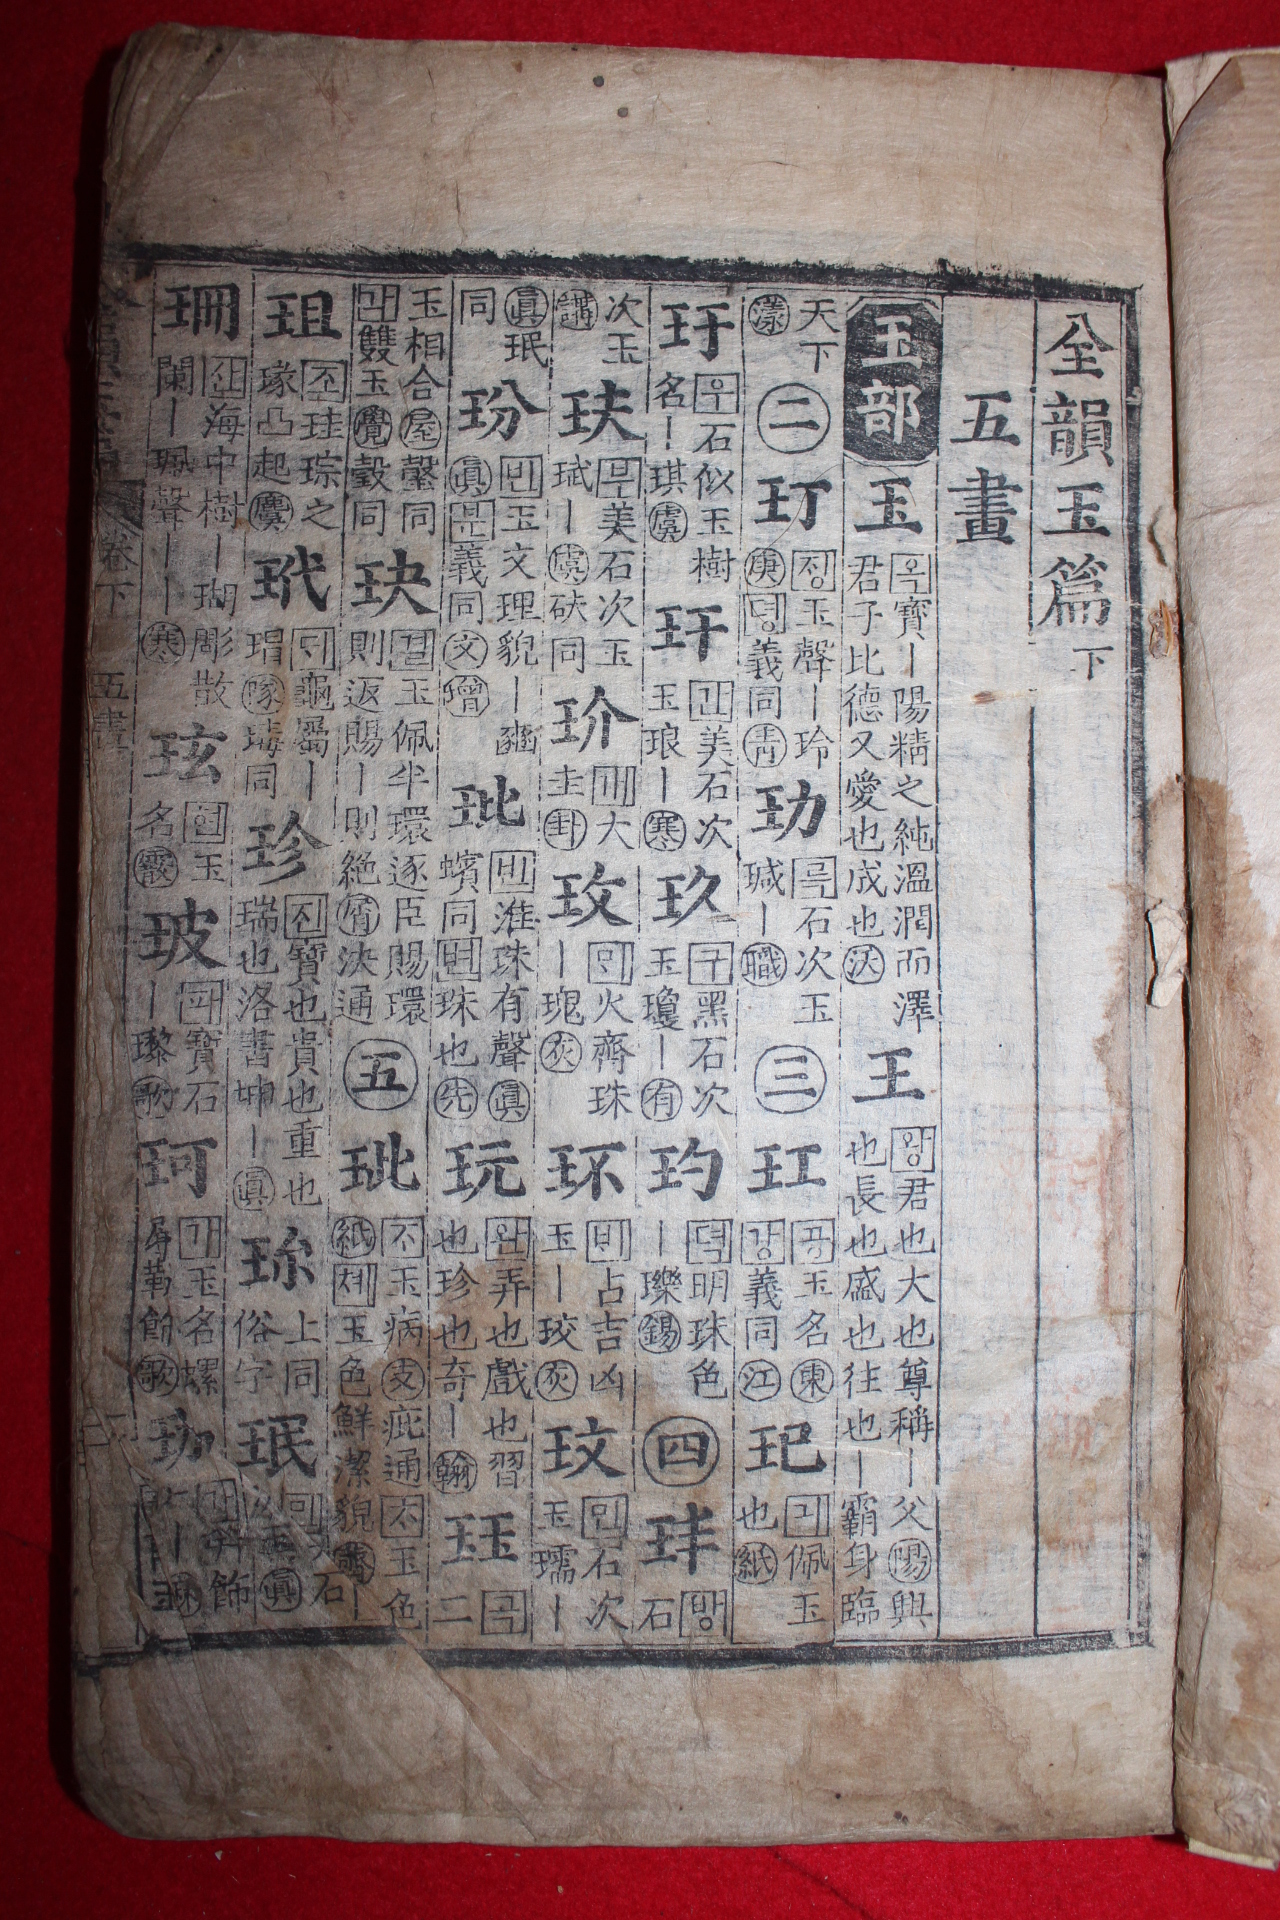 全韻玉篇下
五畫
玉部 玉 옥寶丨陽精之純溫潤而澤君子比德又愛也成也沃 王 왕君也大也尊稱丨父陽興也長也盛也往也丨霸身臨
天下漾 二 玎 정玉聲丨玲庚뎡義同靑 玏 륵石次玉瑊丨職 三 玒 공玉名東강義同江 玘 긔佩玉也紙
玗 우石似玉樹名丨琪虞 玕 간美石次玉琅丨寒 玖 구黑石次玉瓊丨有 玓 뎍明珠色丨瓅錫 四 玤 방石
次玉講 玞 부美石次玉珷丨虞砆同 玠 개大圭卦 玫 火齊珠丨瑰灰 环 占吉凶玉丨珓灰 玟 민石次玉瓀丨
眞珉同 玢 빈玉文理貌丨豳眞문義同文 玭 빈淮珠有聲眞蠙同변珠也先 玩 완弄也戲也習也珍也奇丨翰 玨 곡二
玉相合屋瑴同각雙玉覺瑴同 玦 결玉佩半環逐臣賜環則返賜丨則絶屑決通 五 玼 玉病支疵通玉色紙졔玉色鮮潔貌齊
珇 조珪琮之瑑凸起麌 玳 龜屬丨瑁隊瑇同 珍 진寶也貴也重也瑞也洛書坤丨眞 珎 上同俗字 珉 민美石次玉眞
珊 산海中樹丨瑚彫散闌丨珮聲丨丨寒 玹 현玉名霰 玻 파寶石丨瓈歌 珂 가玉名螺屬勒飾歌 珈 笄飾
卷下 五畫